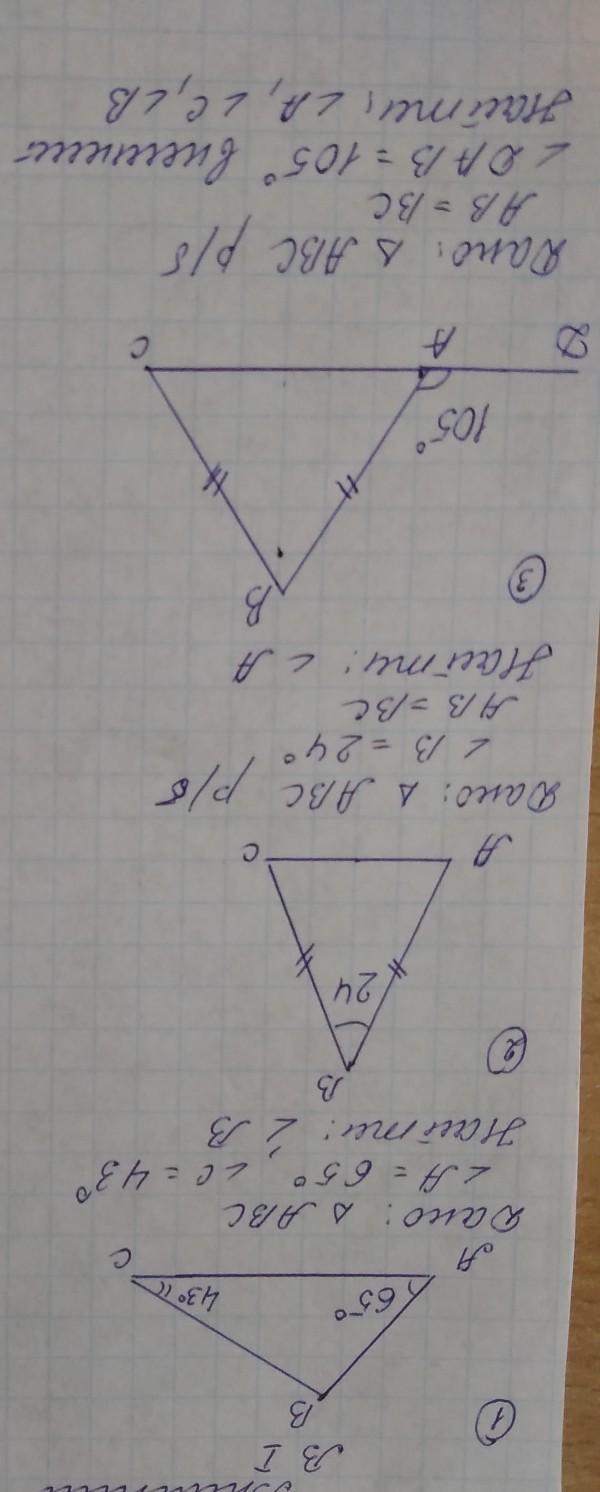 В I
①
B
65°
43°
A
C
Дано: △ ABC
∠A = 65°, ∠C = 43°
Найти: ∠B
②
B
24
A
C
Дано: △ ABC р/б
∠B = 24°
AB = BC
Найти: ∠A
③
B
105°
D
A
C
Дано: △ ABC р/б
AB = BC
∠DAB = 105° внешний
Найти: ∠A, ∠C, ∠B